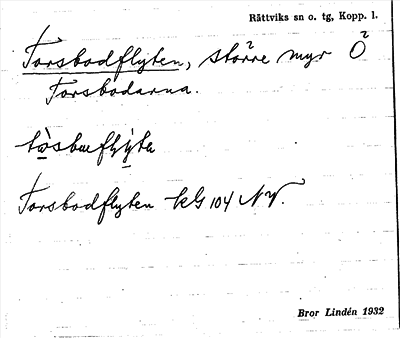 Rättviks sn o. tg, Kopp. l.
Torsbodflyten, större myr Ö
Torsbodarna.
Torsbodflyten kG 104 NV.
Bror Lindén 1932